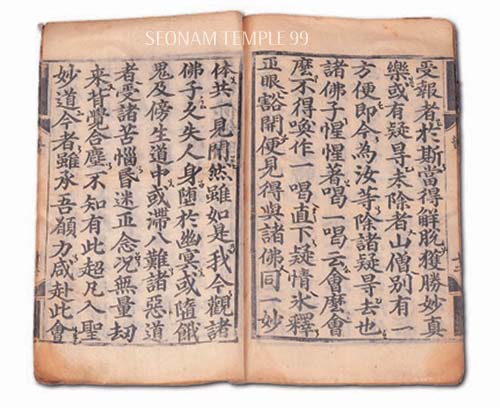 SEONAM TEMPLE 99
受報者扵斯當得解脫獲勝妙真
樂或有疑㝵未除者山僧别有一
方便即今為汝等除諸疑㝵去也
諸佛子惺惺著喝一喝云會麽會
麽不得喚作一喝直下疑情氷釋
正眼豁開便見得與諸佛同一妙
体共一見閴然雖如是我今觀諸
佛子久失人身墮於幽冥或隨餓
鬼及傍生道中或滯八難諸惡道
者受諸苦惱昏迷正念况無量劫
来背覺合塵不知有此超凡入聖
妙道今者雖承吾願力咸赴此會